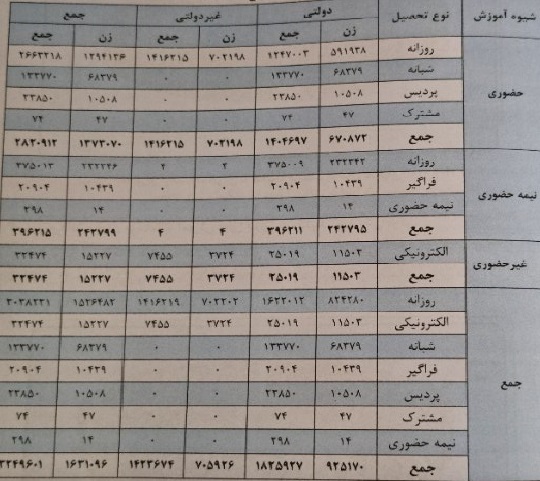 شیوه آموزش نوع تحصیل دولتی غیردولتی جمع
زن جمع زن جمع زن جمع
حضوری روزانه ۵۹۱۹۳۸ ۱۲۴۷۰۰۳ ۷۰۲۱۹۸ ۱۴۱۶۲۱۵ ۱۲۹۴۱۳۶ ۲۶۶۳۲۱۸
شبانه ۶۸۳۷۹ ۱۳۳۷۷۰ ۰ ۰ ۶۸۳۷۹ ۱۳۳۷۷۰
پردیس ۱۰۵۰۸ ۲۳۸۵۰ ۰ ۰ ۱۰۵۰۸ ۲۳۸۵۰
مشترک ۴۷ ۷۴ ۰ ۰ ۴۷ ۷۴
جمع ۶۷۰۸۷۲ ۱۴۰۴۶۹۷ ۷۰۲۱۹۸ ۱۴۱۶۲۱۵ ۱۳۷۳۰۷۰ ۲۸۲۰۹۱۲
نیمه حضوری روزانه ۲۳۲۳۴۲ ۳۷۵۰۰۹ ۴ ۴ ۲۳۲۳۴۶ ۳۷۵۰۱۳
فراگیر ۱۰۴۳۹ ۲۰۹۰۴ ۰ ۰ ۱۰۴۳۹ ۲۰۹۰۴
نیمه حضوری ۱۴ ۲۹۸ ۰ ۰ ۱۴ ۲۹۸
جمع ۲۴۲۷۹۵ ۳۹۶۲۱۱ ۴ ۴ ۲۴۲۷۹۹ ۳۹۶۲۱۵
غیرحضوری الکترونیکی ۱۱۵۰۳ ۲۵۰۱۹ ۳۷۲۴ ۷۴۵۵ ۱۵۲۲۷ ۳۲۴۷۴
جمع ۱۱۵۰۳ ۲۵۰۱۹ ۳۷۲۴ ۷۴۵۵ ۱۵۲۲۷ ۳۲۴۷۴
جمع روزانه ۸۲۴۲۸۰ ۱۶۲۲۰۱۲ ۷۰۲۲۰۲ ۱۴۱۶۲۱۹ ۱۵۲۶۴۸۲ ۳۰۳۸۲۳۱
الکترونیکی ۱۱۵۰۳ ۲۵۰۱۹ ۳۷۲۴ ۷۴۵۵ ۱۵۲۲۷ ۳۲۴۷۴
شبانه ۶۸۳۷۹ ۱۳۳۷۷۰ ۰ ۰ ۶۸۳۷۹ ۱۳۳۷۷۰
فراگیر ۱۰۴۳۹ ۲۰۹۰۴ ۰ ۰ ۱۰۴۳۹ ۲۰۹۰۴
پردیس ۱۰۵۰۸ ۲۳۸۵۰ ۰ ۰ ۱۰۵۰۸ ۲۳۸۵۰
مشترک ۴۷ ۷۴ ۰ ۰ ۴۷ ۷۴
نیمه حضوری ۱۴ ۲۹۸ ۰ ۰ ۱۴ ۲۹۸
جمع ۹۲۵۱۷۰ ۱۸۲۵۹۲۷ ۷۰۵۹۲۶ ۱۴۲۳۶۷۴ ۱۶۳۱۰۹۶ ۳۲۴۹۶۰۱